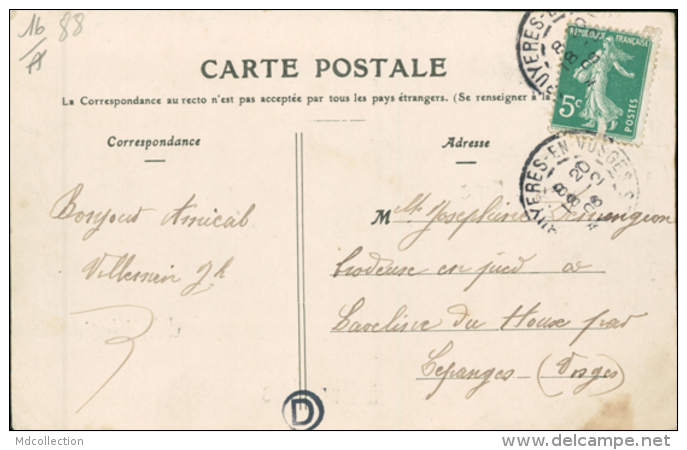 16 88
A
CARTE POSTALE
La Correspondance au recto n'est pas acceptée par tous les pays étrangers. (Se renseigner à la
Correspondance
Adresse
REPUBLIQUE FRANÇAISE
5c
POSTES
BRUYERES-EN-VOSGES
Bonjour Amical
Villemin Jh
M Mlle Joséphine Demengeon
brodeuse en pied
du House par
Lépanges (Vosges)
D
Mdcollection
delcampe.net